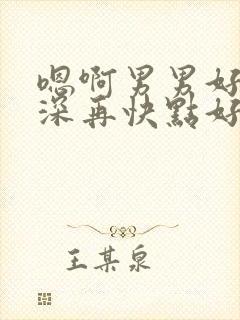 嗯啊男男好
深再快點好
王某泉